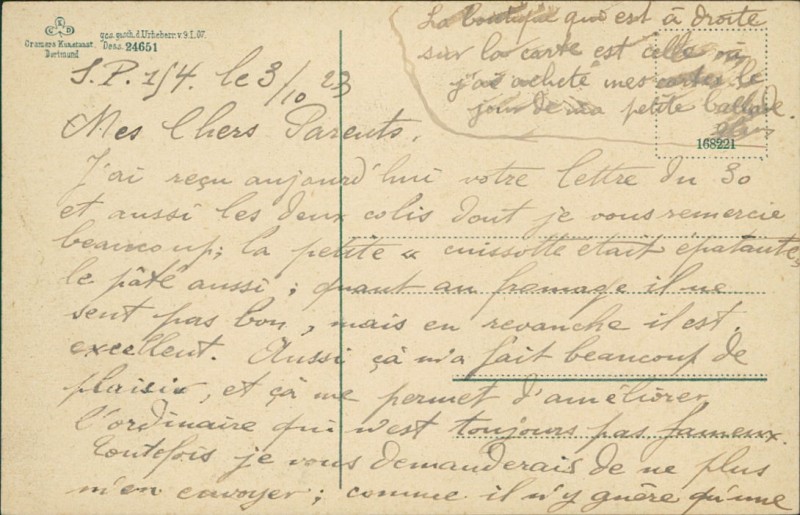 C K D
Cramers Kunstanst.
Dortmund
ges. gesch. d. Urheberr. v. 9.I.07.
Dess. 24651
La boutique qui est à droite
sur la carte est celle où
j'ai acheté mes cartes le
jour de ma petite ballade.
168221
S.P. 154. le 3/10 23
Mes Chers Parents,
J'ai reçu aujourd'hui votre lettre du 30
et aussi les deux colis dont je vous remercie
beaucoup; la petite « cuissotte était épatante
le pâté aussi; quant au fromage il ne
sent pas bon, mais en revanche il est
excellent. Aussi çà m'a fait beaucoup de
plaisir, et çà me permet d'améliorer
l'ordinaire qui n'est toujours pas fameux.
Toutefois je vous demanderais de ne plus
m'en envoyer; comme il n'y guère qu'une